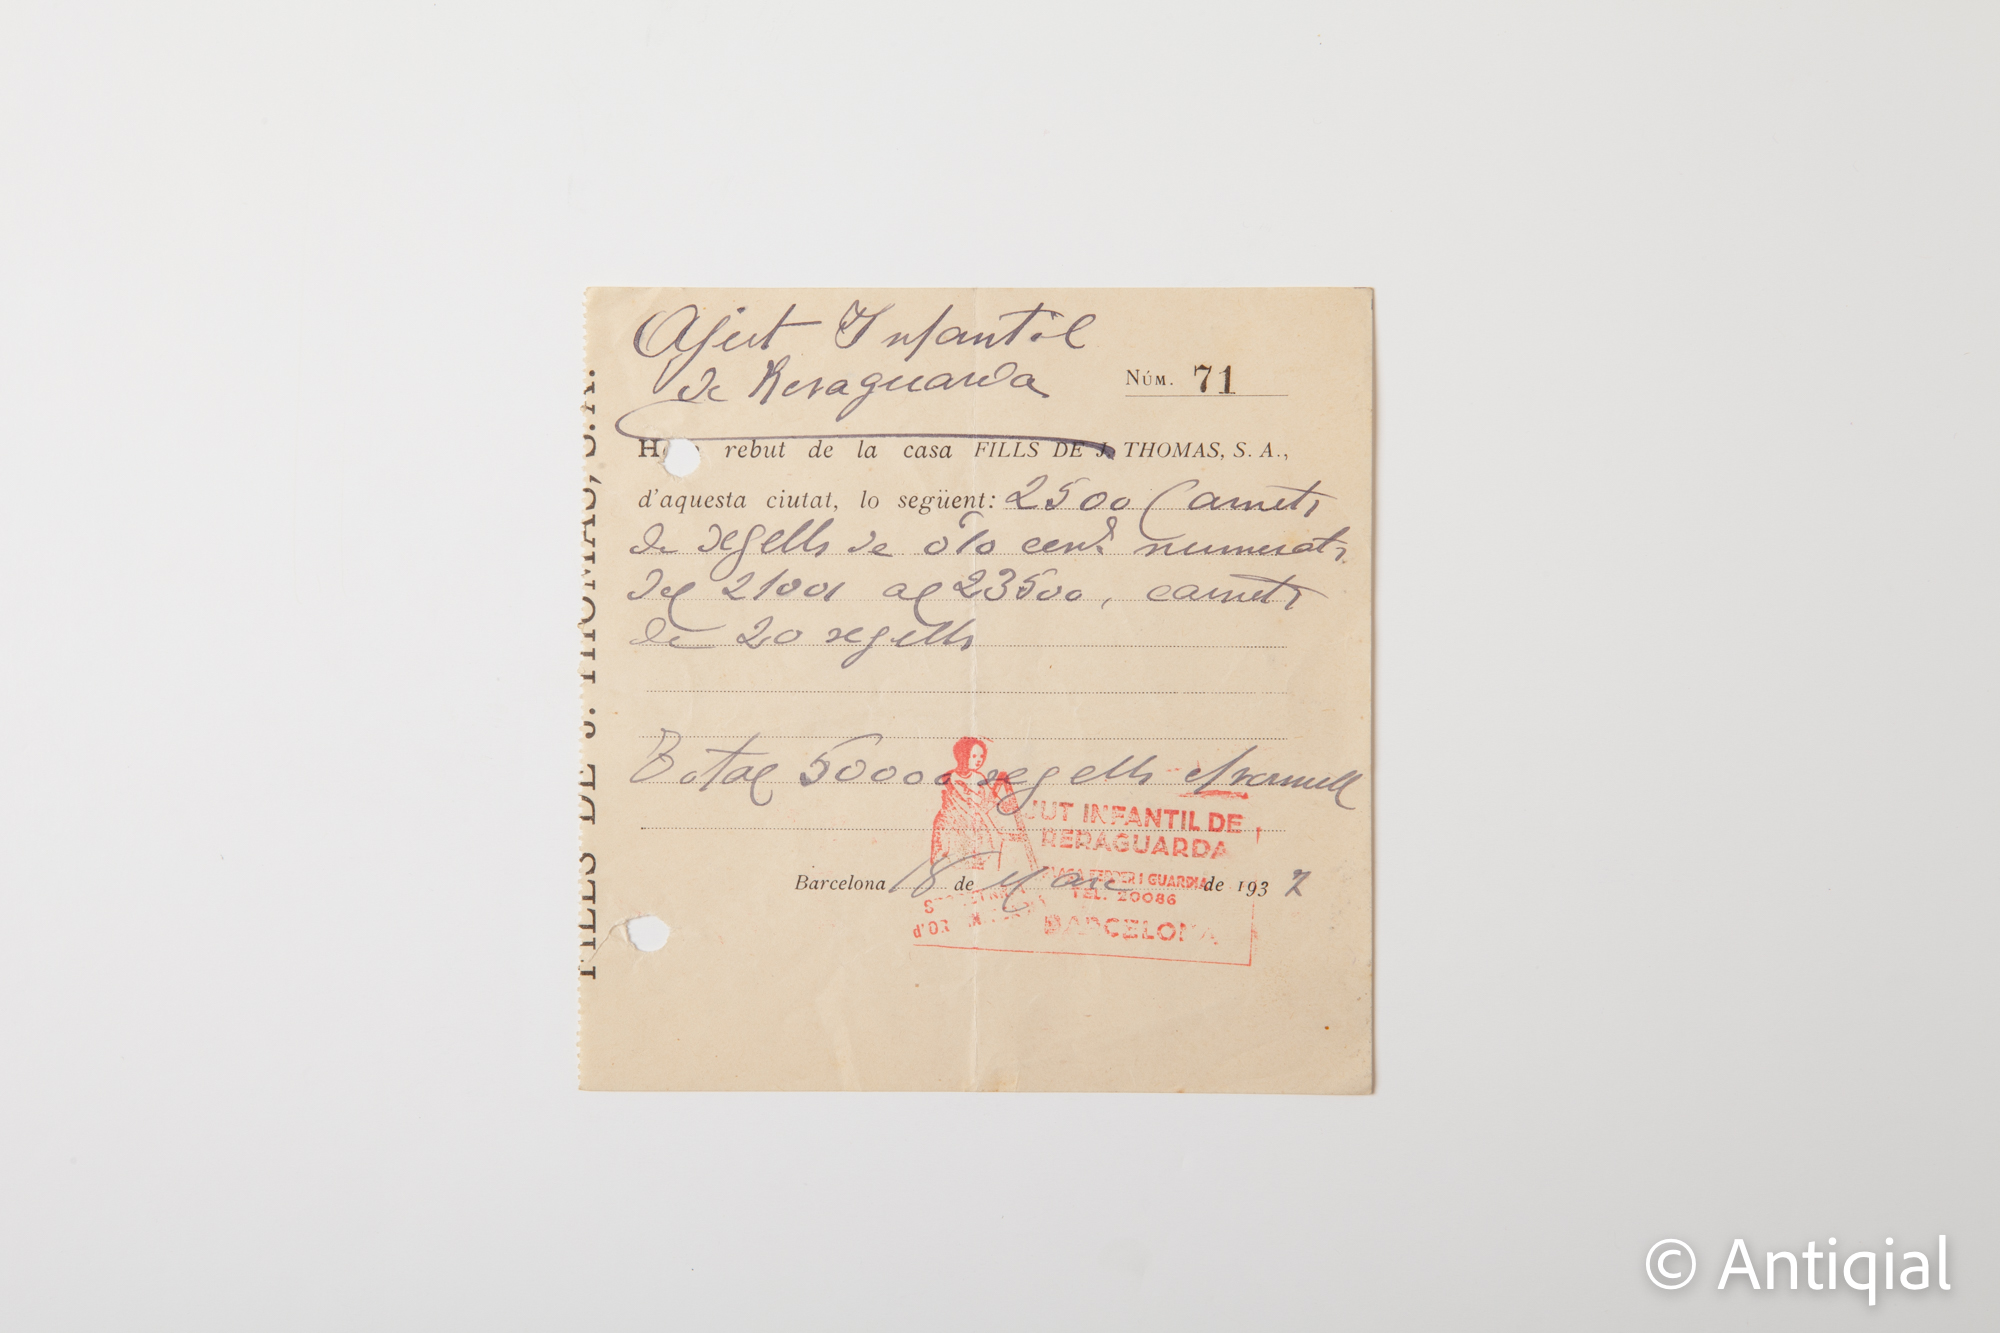 Ajut Infantil
de Reraguarda
NÚM. 71
H rebut de la casa FILLS DE J. THOMAS, S. A.,
d'aquesta ciutat, lo següent: 2500 Carnets
de segells de 0'10 cent. numerats
del 21001 al 23500, carnets
de 20 segells
Total 50000 segells vermell
JUT INFANTIL DE
RERAGUARDA
PLAÇA FERRER I GUARDIA
TEL. 20086
BARCELONA
Barcelona 18 de Març de 1937
FILLS DE J. THOMAS, S. A.
© Antiqial